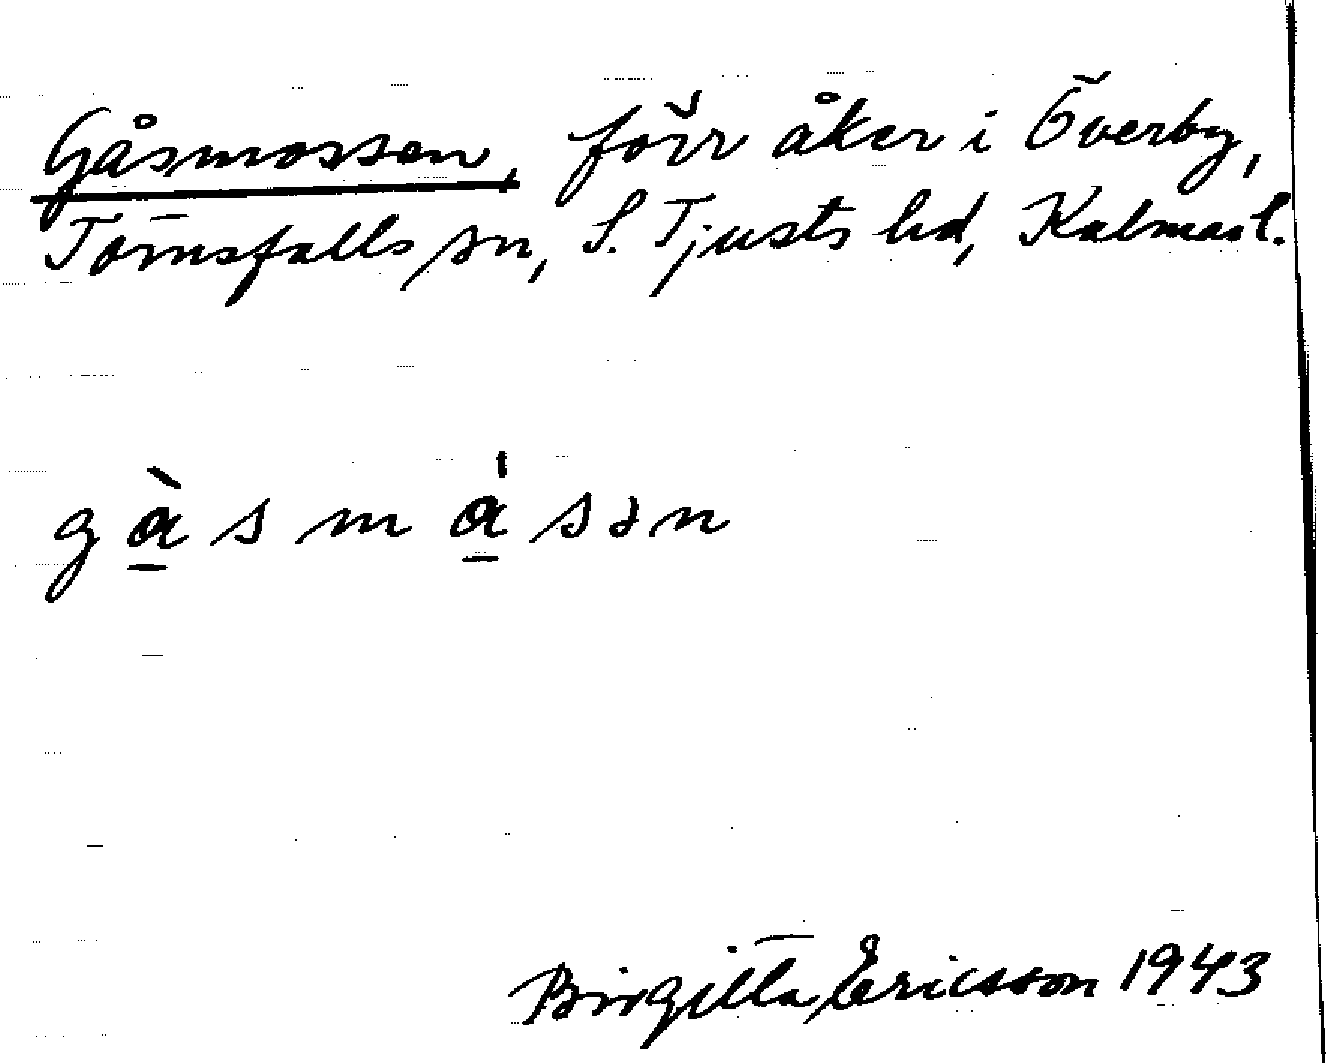 Gåsmossen, förr åker i Överby,
Törnsfalls sn, S. Tjusts hd, Kalmar l.
gàsmásən
Birgitta Ericsson 1943